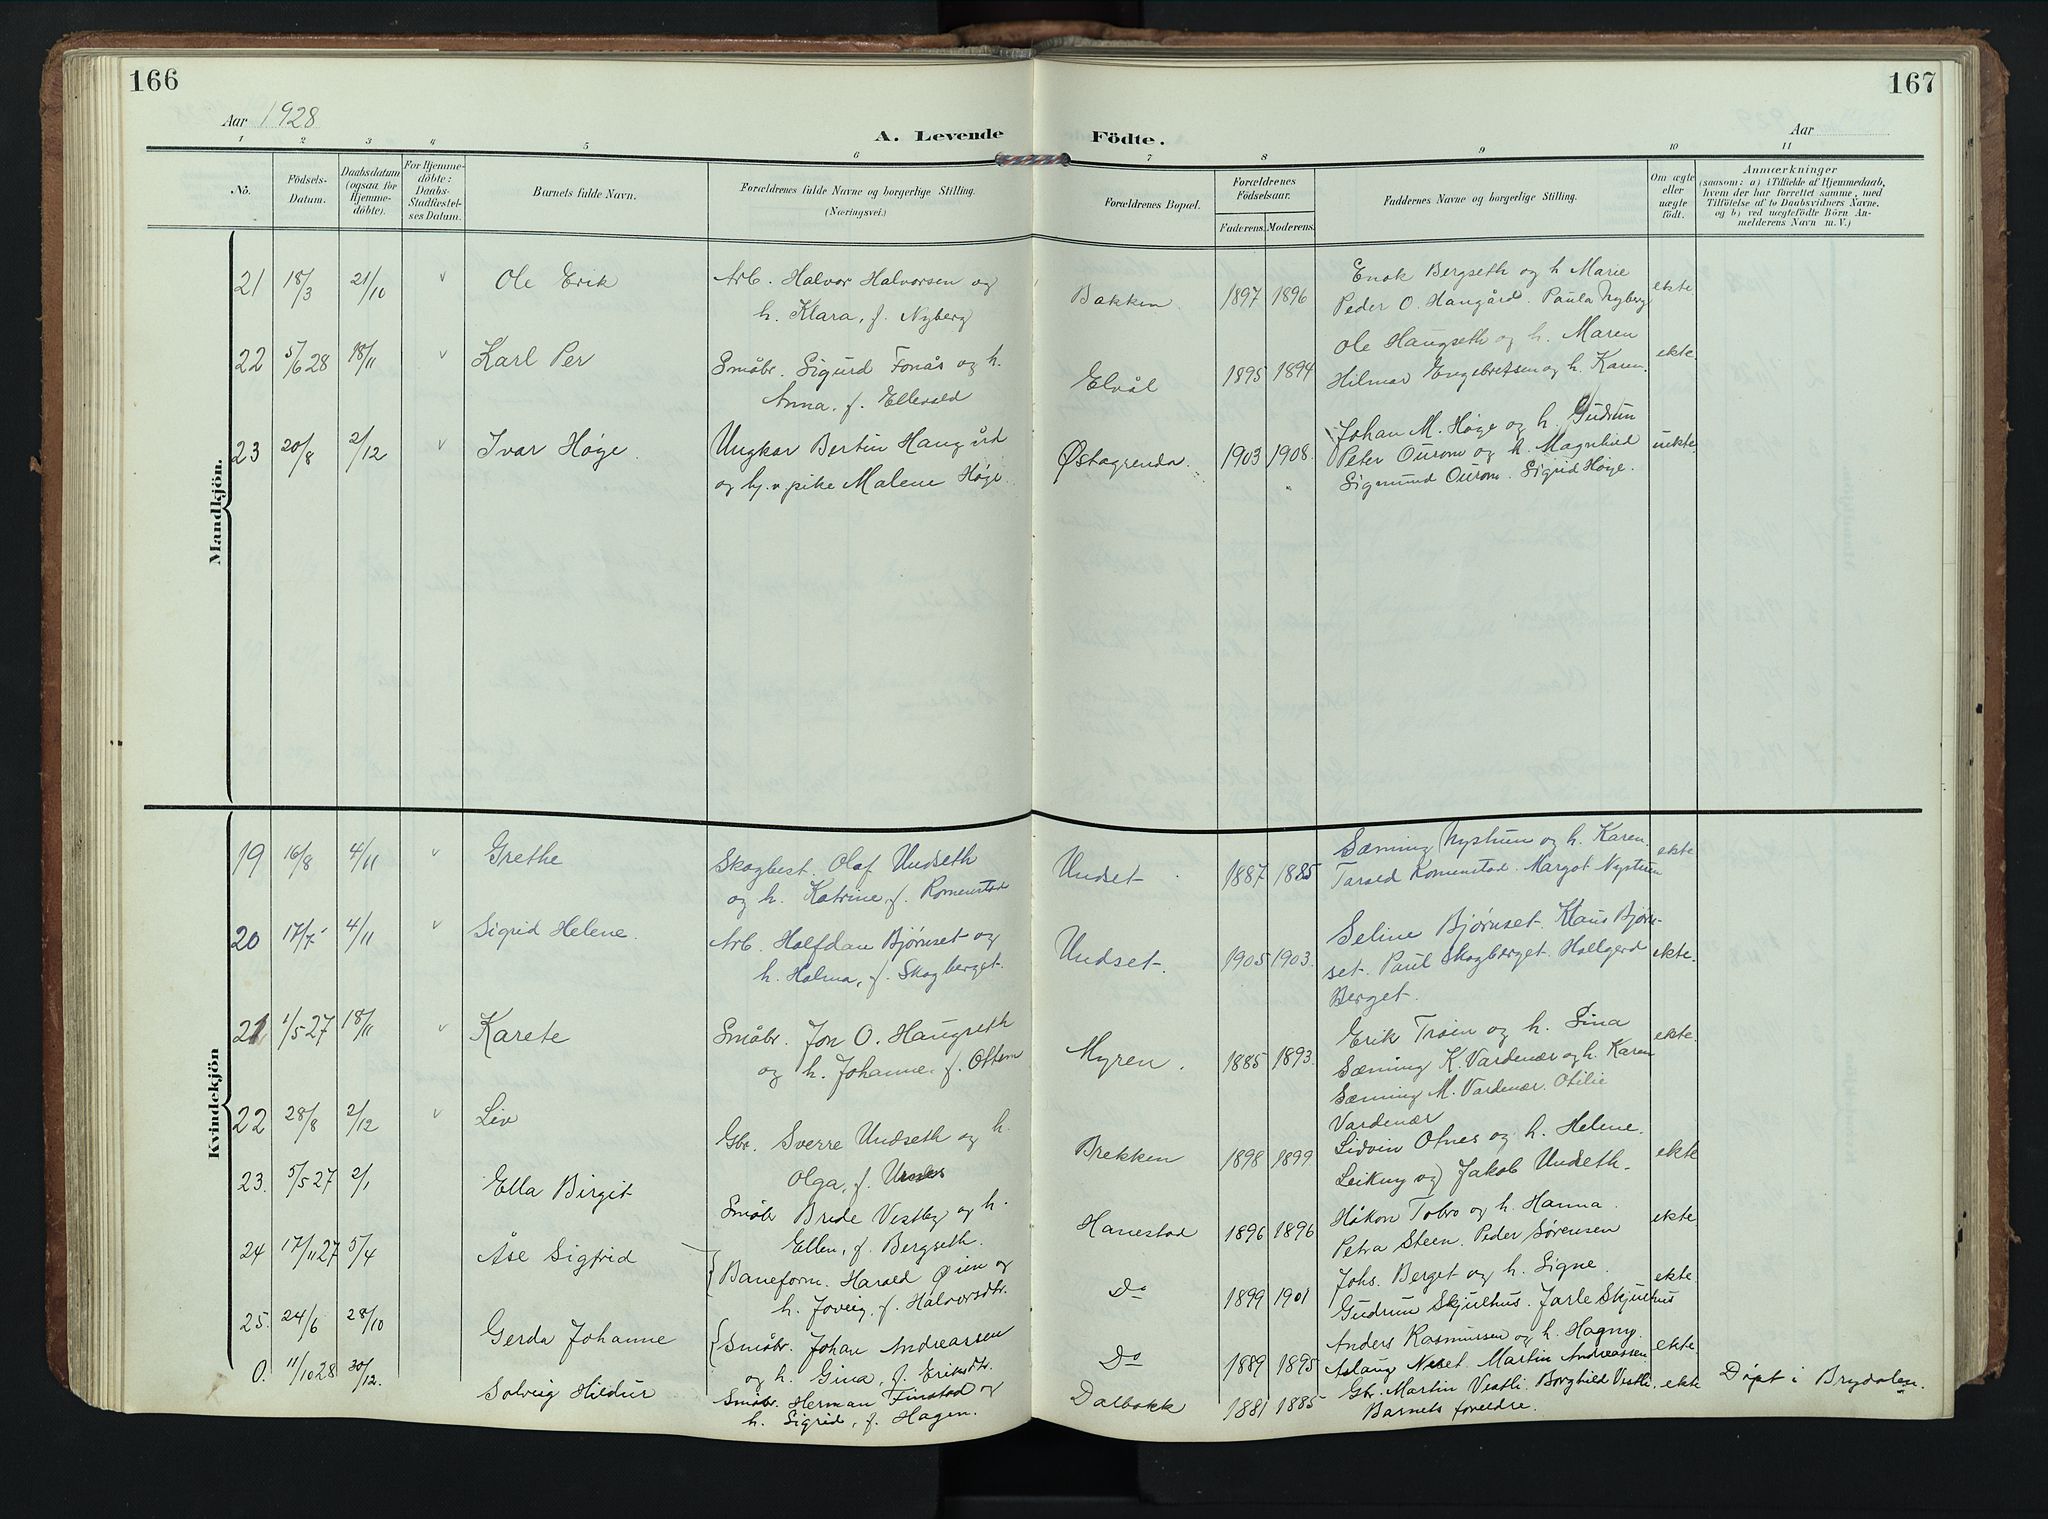 166
167
Aar 1928
A. Levende
Födte.
Aar
1 2 3 4 5 6 7 8 9 10 11
Nô.
Födsels-Datum.
Daabsdatum (ogsaa for Hjemmedöbte).
For Hjemmedöbte: Daabs-Stadfæstelses Datum.
Barnets fulde Navn.
Forældrenes fulde Navne og borgerlige Stilling.
(Næringsvei.)
Forældrenes Bopæl.
Forældrenes Födselsaar.
Faderens. Moderens.
Faddernes Navne og borgerlige Stilling.
Om ægte eller uægte födt.
Anmærkninger
(saasom: a) i Tilfælde af Hjemmedaab, hvem der har forrettet samme, med Tilföielse af to Daabsvidners Navne, og b) ved uægtefödte Börn Anmelderens Navn m. V.)
Mandkjön.
21 18/3 21/10 v Ole Erik Arb. Halvor Halvorsen og Bakken. 1897 1896 Enok Bergseth og h. Marie ekte
h. Klara, f. Nyberg Peder O. Haugård. Paula Nyberg
22 5/6 28 18/11 v Karl Per Småbr. Sigurd Fonås og h. Elvål 1895 1894 Ole Haugseth og h. Maren ekte.
Anna, f. Ellevold Hilmar Engebretsen og h. Karen.
23 20/8 2/12 v Ivar Høge. Ungkar Bertin Haugård Østagrenda. 1903 1908. Johan M. Høge og h. Gudrun uekte.
og hj.v. pike Malene Høge. Peter Ourom og h. Magnhild
Sigmund Ourom. Sigrid Høge.
Kvindekjön
19 16/8 4/11 v Grethe Skogbest. Olaf Undseth Undset. 1887 1885 Sæming Nystuen og h. Karen. ekte
og h. Katrine, f. Romenstad Tarald Romenstad. Margot Nystuen
20 17/7 4/11 v Sigrid Helene. Arb. Halfdan Bjørnset og Undset. 1905 1903. Seline Bjørnset. Klaus Bjørn- ekte.
h. Halma, f. Skogberget. set. Paul Skogberget. Hallgerd
Berget.
21 1/5 27 18/11 v Karete Småbr. Jon O. Haugseth Myren. 1885 1893. Erik Trøen og h. Lina ekte.
og h. Johanne, f. Ottem Sæming K. Vardenær og h. Karen
Sæming M. Vardenær. Otilie
Vardenær
22 28/8 2/12 v Liv Gbr. Sverre Undseth og h. Brekken 1898 1899 Lidvin Otnes og h. Helene. ekte
Olga, f. Leikny og Jakob Undseth.
23. 5/5 27 2/1 Ella Birgit Småbr Brede Vestby og h. Hanestad 1896 1896 Håkon Tobro og h. Hanna. ekte
Ellen, f. Bergseth. Petra Steen. Peder Sørensen
24 17/11 27 5/4 Åse Sigfrid Baneform. Harald Øien og Do 1899 1901 Johs. Berget og h. Signe. ekte
h. f. Halvorsdtr. Gudrun Skjulhus. Jarle Skjulhus
25. 24/6 28/10 Gerda Johanne Småbr. Johan Andreassen Do 1889 1895 Anders Rasmussen og h. Hagny. ekte
og h. Gina, f. Eriksdtr. Aslaug Neset. Martin Andreassen.
0. 11/10 28 30/12. Solveig Hildur Småbr. Herman Finstad og Dalbakk 1881 1885 Gbr. Martin Vestli. Borghild Vestli, ekte Døpt i Brydalen.
h. Sigrid, f. Hagen. Barnets foreldre.